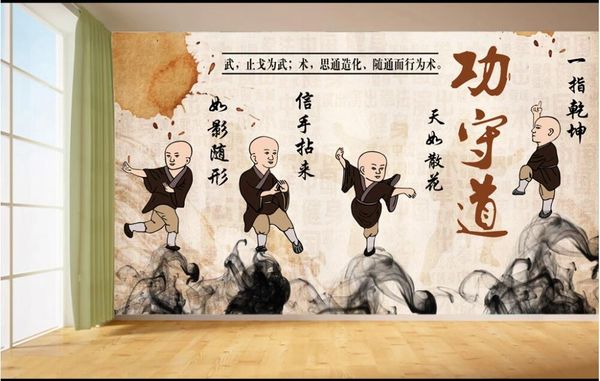 武，止戈为武；术，思通造化、随通而行为术。
功守道
一指乾坤
天如散花
信手拈来
如影随形